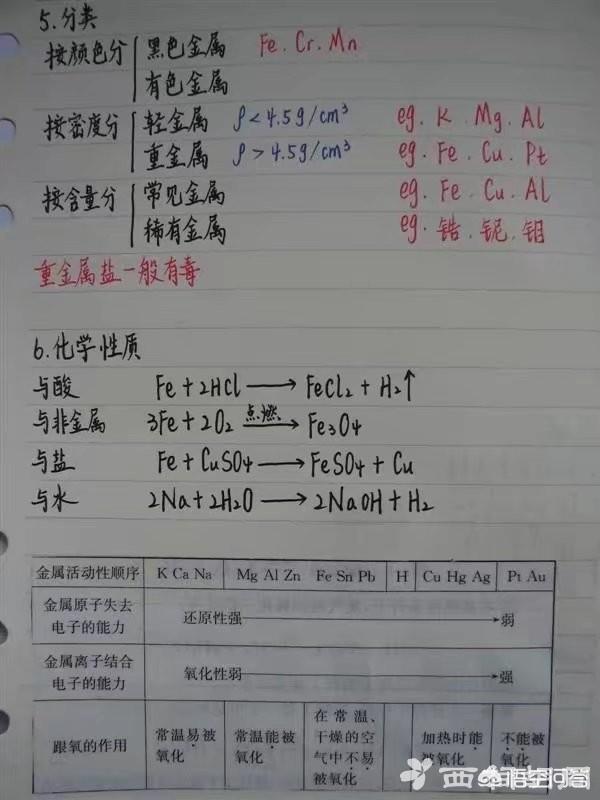 5.分类
按颜色分 黑色金属 Fe.Cr.Mn
有色金属
按密度分 轻金属 ρ<4.5g/cm³ eg. K. Mg. Al
重金属 ρ>4.5g/cm³ eg. Fe. Cu. Pt
按含量分 常见金属 eg. Fe. Cu. Al
稀有金属 eg. 锆.铌.钼
重金属盐一般有毒
6.化学性质
与酸 Fe+2HCl⟶FeCl₂+H₂↑
与非金属 3Fe+2O₂ 点燃⟶ Fe₃O₄
与盐 Fe+CuSO₄⟶FeSO₄+Cu
与水 2Na+2H₂O⟶2NaOH+H₂
金属活动性顺序 K Ca Na Mg Al Zn Fe Sn Pb H Cu Hg Ag Pt Au
金属原子失去电子的能力 还原性强⟶弱
金属离子结合电子的能力 氧化性弱⟶强
跟氧的作用 常温易被氧化 常温能被氧化 在常温、干燥的空气中不易被氧化 加热时能被氧化 不能被氧化
悟空问答